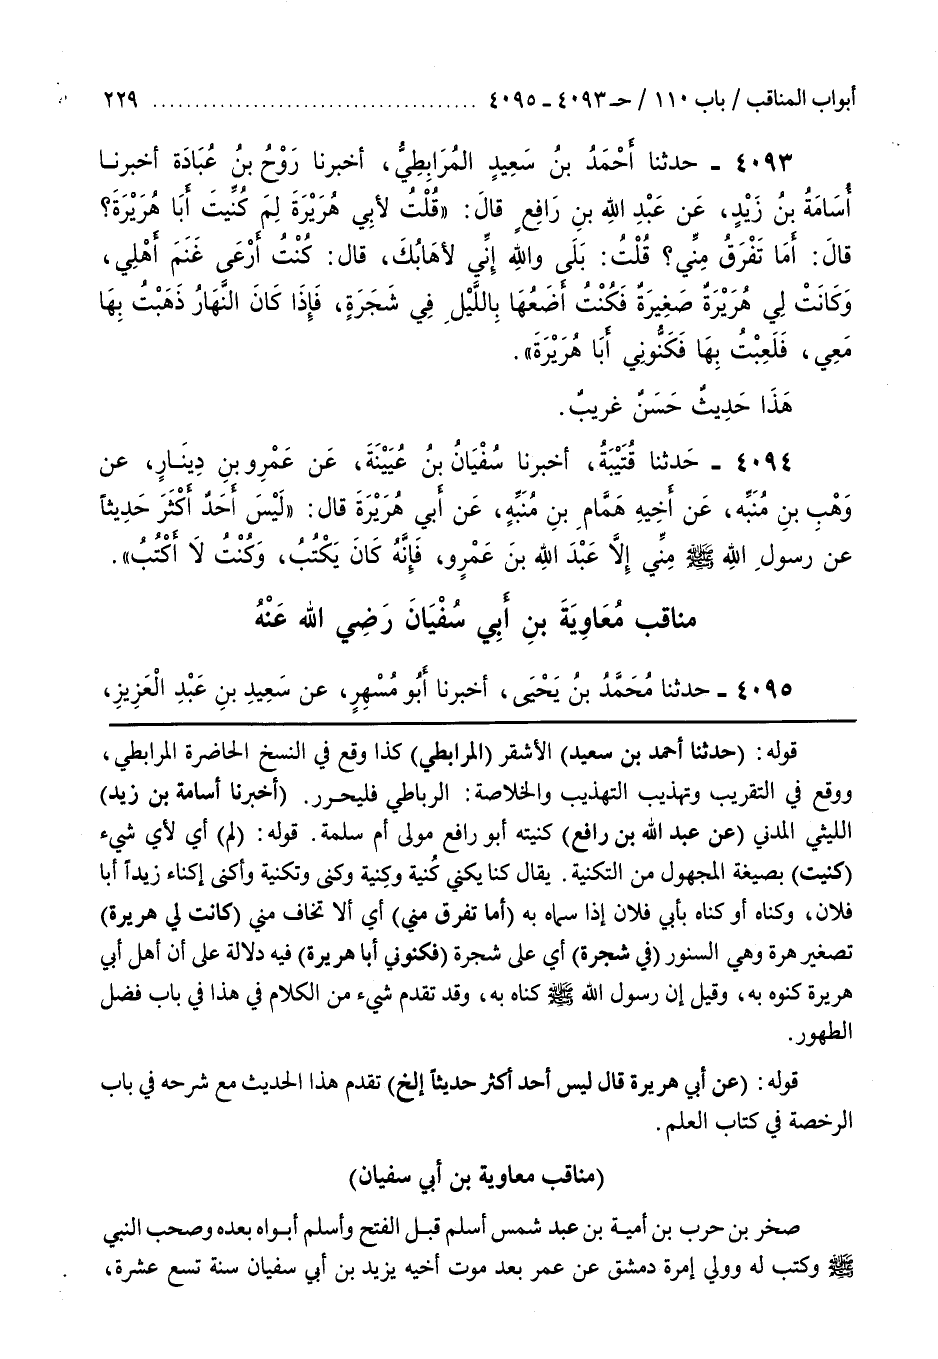 أبواب المناقب / باب ١١٠ / حـ ٤٠٩٣ ـ ٤٠٩٥ .................................... ٢٢٩
٤٠٩٣ ـ حدثنا أَحْمَدُ بنُ سَعِيدٍ المُرَابِطِيُّ، أخبرنا رَوْحُ بنُ عُبَادَة أخبرنا
أُسَامَةُ بنُ زَيْدٍ، عَن عَبْدِ الله بنِ رَافِعٍ قالَ: «قُلْتُ لأبي هُرَيْرَةَ لِمَ كُنِّيتَ أَبَا هُرَيْرَةَ؟
قالَ: أَمَا تَفْرَقُ مِنِّي؟ قُلْتُ: بَلَى والله إِنِّي لأهَابُكَ، قال: كُنْتُ أَرْعَى غَنَمَ أَهْلِي،
وَكَانَتْ لِي هُرَيْرَةٌ صَغِيرَةٌ فَكُنْتُ أَضَعُهَا بِاللَّيْلِ فِي شَجَرَةٍ، فَإِذَا كَانَ النَّهَارُ ذَهَبْتُ بِهَا
مَعِي، فَلَعِبْتُ بِهَا فَكَنُّونِي أَبَا هُرَيْرَةَ».
هَذَا حَدِيثٌ حَسَنٌ غريبٌ.
٤٠٩٤ ـ حَدثنا قُتَيْبَةُ، أخبرنا سُفْيَانُ بنُ عُيَيْنَةَ، عَن عَمْرِو بنِ دِينَارٍ، عن
وَهْبِ بنِ مُنَبِّه، عَن أَخِيهِ هَمَّامِ بنِ مُنَبِّهٍ، عَن أَبي هُرَيْرَةَ قال: «لَيْسَ أَحَدٌ أَكْثَرَ حَدِيثاً
عن رسولِ الله ﷺ مِنِّي إِلَّا عَبْدَ الله بنَ عَمْرٍو، فَإِنَّهُ كَانَ يَكْتُبُ، وَكُنْتُ لَا أَكْتُبُ».
مناقب مُعَاوِيَةَ بنِ أَبِي سُفْيَانَ رَضِي الله عَنْهُ
٤٠٩٥ ـ حدثنا مُحَمَّدُ بنُ يَحْيَى، أخبرنا أَبُو مُسْهِرٍ، عن سَعِيدِ بنِ عَبْدِ الْعَزِيزِ،
قوله: (حدثنا أحمد بن سعيد) الأشقر (المرابطي) كذا وقع في النسخ الحاضرة المرابطي،
ووقع في التقريب وتهذيب التهذيب والخلاصة: الرباطي فليحرر. (أخبرنا أسامة بن زيد)
الليثي المدني (عن عبد الله بن رافع) كنيته أبو رافع مولى أم سلمة. قوله: (لم) أي لأي شيء
(كنيت) بصيغة المجهول من التكنية. يقال كنا يكني كُنية وكِنية وكنى وتكنية وأكنى إكناء زيداً أبا
فلان، وكناه أو كناه بأبي فلان إذا سماه به (أما تفرق مني) أي ألا تخاف مني (كانت لي هريرة)
تصغير هرة وهي السنور (في شجرة) أي على شجرة (فكنوني أبا هريرة) فيه دلالة على أن أهل أبي
هريرة كنوه به، وقيل إن رسول الله ﷺ كناه به، وقد تقدم شيء من الكلام في هذا في باب فضل
الطهور.
قوله: (عن أبي هريرة قال ليس أحد أكثر حديثاً إلخ) تقدم هذا الحديث مع شرحه في باب
الرخصة في كتاب العلم.
(مناقب معاوية بن أبي سفيان)
صخر بن حرب بن أمية بن عبد شمس أسلم قبل الفتح وأسلم أبواه بعده وصحب النبي
ﷺ وكتب له وولي إمرة دمشق عن عمر بعد موت أخيه يزيد بن أبي سفيان سنة تسع عشرة،